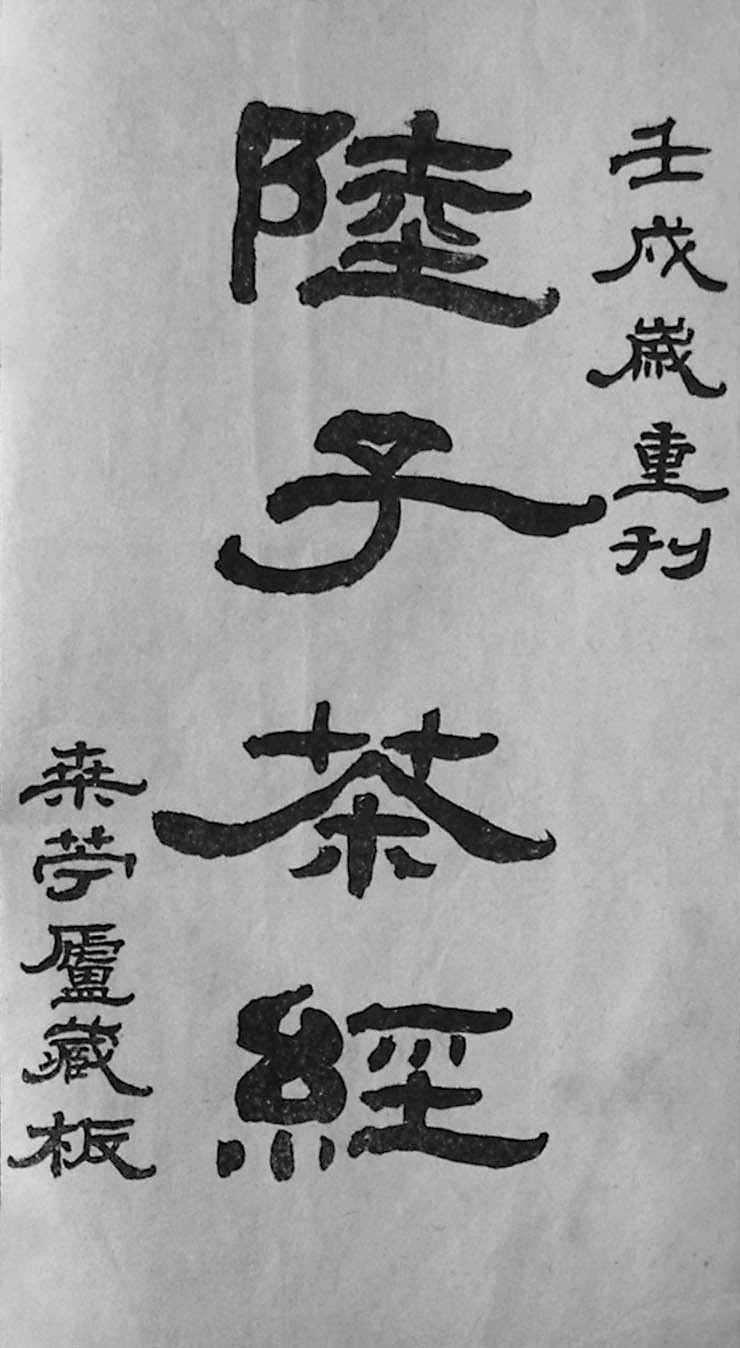 壬戌歲重刊
陸子茶經
桒苧廬藏板